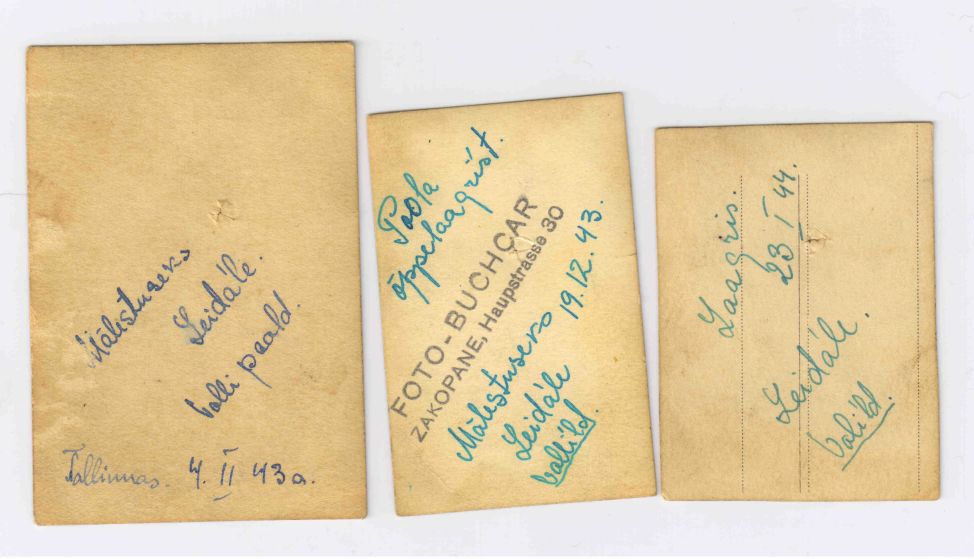 Mälestuseks
Leidále.
Valli paald.
Tallinnas. 4. II 43a.
Poola
õppelaagrist.
FOTO-BUCHCAR
ZAKOPANE, Haupstrasse 30
Mälestuseks 19.12.43.
Leidále
Vallild.
Laagris.
23 I 44.
Leidále.
Valild.